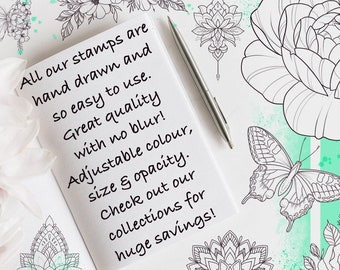 All our stamps are
hand drawn and
so easy to use.
Great quality
with no blur!
Adjustable colour,
size & opacity.
Check out our
collections for
huge savings!